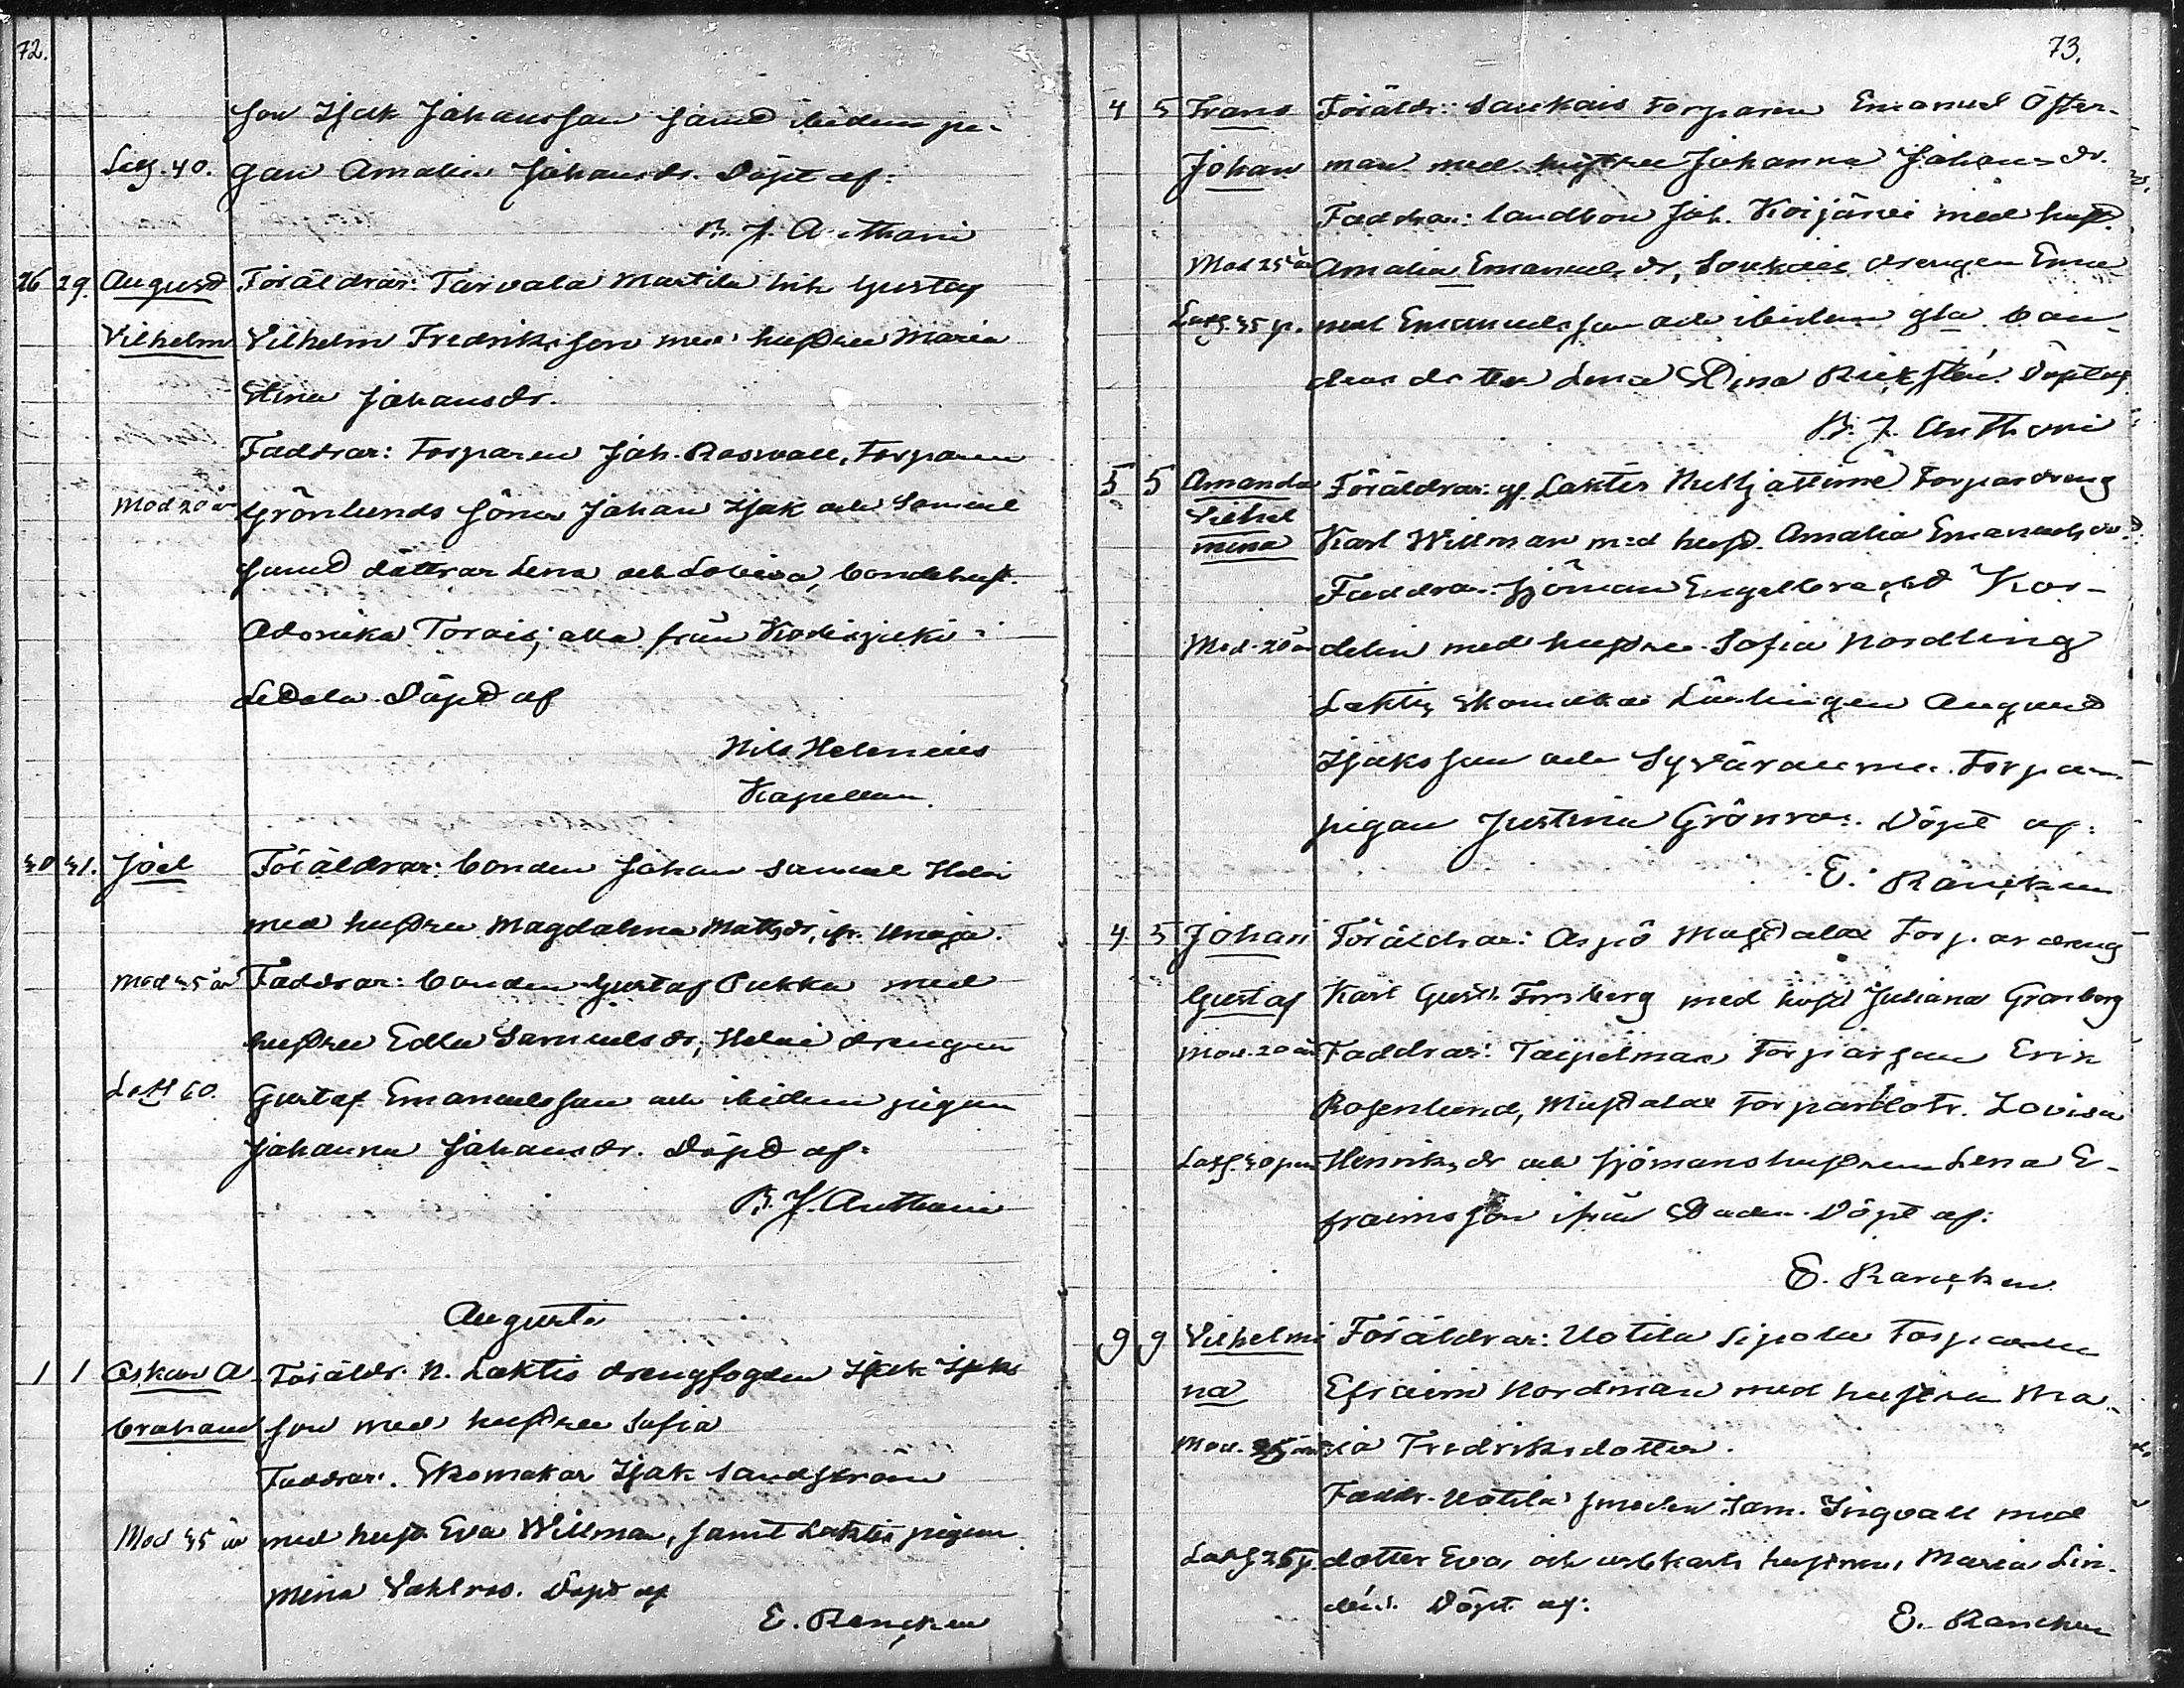 72.
son Isak Johansson samt ibidem pi-
Lösg. 40. gan Amalia Johansdr. Döpt af:
B. J. Anthoni
26 29. August Föräldrar: Tarvola Martila inh Gustaf
Vilhelm Vilhelm Fredriksson med hustru Maria
Stina Johansdr.
Faddrar: Torparen Joh. Rosvall, Torparen
Mod 20 år Grönlunds söner Johan Isak och Samuel
samt döttrar Lena och Lovisa, bondehust.
Adorika Torais, alla från Kodisjoki i
Letala. Döpt af
Nils Helenius
Kapellan.
30 31. Joel Föräldrar: bonden Johan Samuel Heloi
med hustru Magdalena Mattsdr, ifr. Unaja.
Mod 35 år Faddrar: bonden Gustaf Pukka med
hustru Edla Samuelsdr, Heloi drengen
60. Gustaf Emanuelsson och ibidem pigan
Johanna Johansdr. Döpt af:
B. J. Anthoni
Augusti
1 1 Oskar A- Föräldr. N. Laktis drengfogden Isak Isaks
braham son med hustru Sofia
Faddrar. Skomakar Isak Sandström
Mod 35 år med hust Eva Willman, samt Laktis pigan
Mina Vahlroos. Döpt af
E. Rancken
73.
4 5 Frans Föräldr: Soukais Torparen Emanuel Öster-
Johan man med hustru Johanna Johansdr.
Faddrar: landbon Joh. Koijärvi med hust.
Mod 25 år Amalia Emanuelsdr, Soukais drengen Ema-
35 p. nuel Emanuelsson och ibidem gla bon-
dens dotter Lena Stina Rickstén. Döpt af
B. J. Anthoni
5 5 Amanda Föräldrar: Laktis Torpardreng
Vilhel
mina Karl Willman med hust. Amalia Emanuelsdr.
Faddrar: sjöman Engelbrecht Kor-
Mod. 20 år delin med hustru Sofia Nordling
Laktis skomakar Lärlingen August
Isaksson och Torpare
pigan Justina Grönroos. Döpt af:
E. Rancken
4 5 Johan Föräldrar: Arpo Torpardreng
Gustaf Karl Gust. Forsberg med hust Juliana Granberg
Mod. 20 år Faddrar: Torparson Erik
Rosenlund, Torpardotr. Lovisa
30 Henriksdr och sjömanshustrun Lena E-
fraimsson ifrån Staden. Döpt af:
E. Rancken
9 9 Vilhelmi Föräldrar: Uotila Sipola Torparen
na Efraim Nordman med hustru Ma-
Mod. 25 år ria Fredriksdotter.
Faddr. Uotila smeden Sam. Ingvall med
25 p. dotter Eva och hustrun Maria Lin-
dén. Döpt af:
E. Rancken